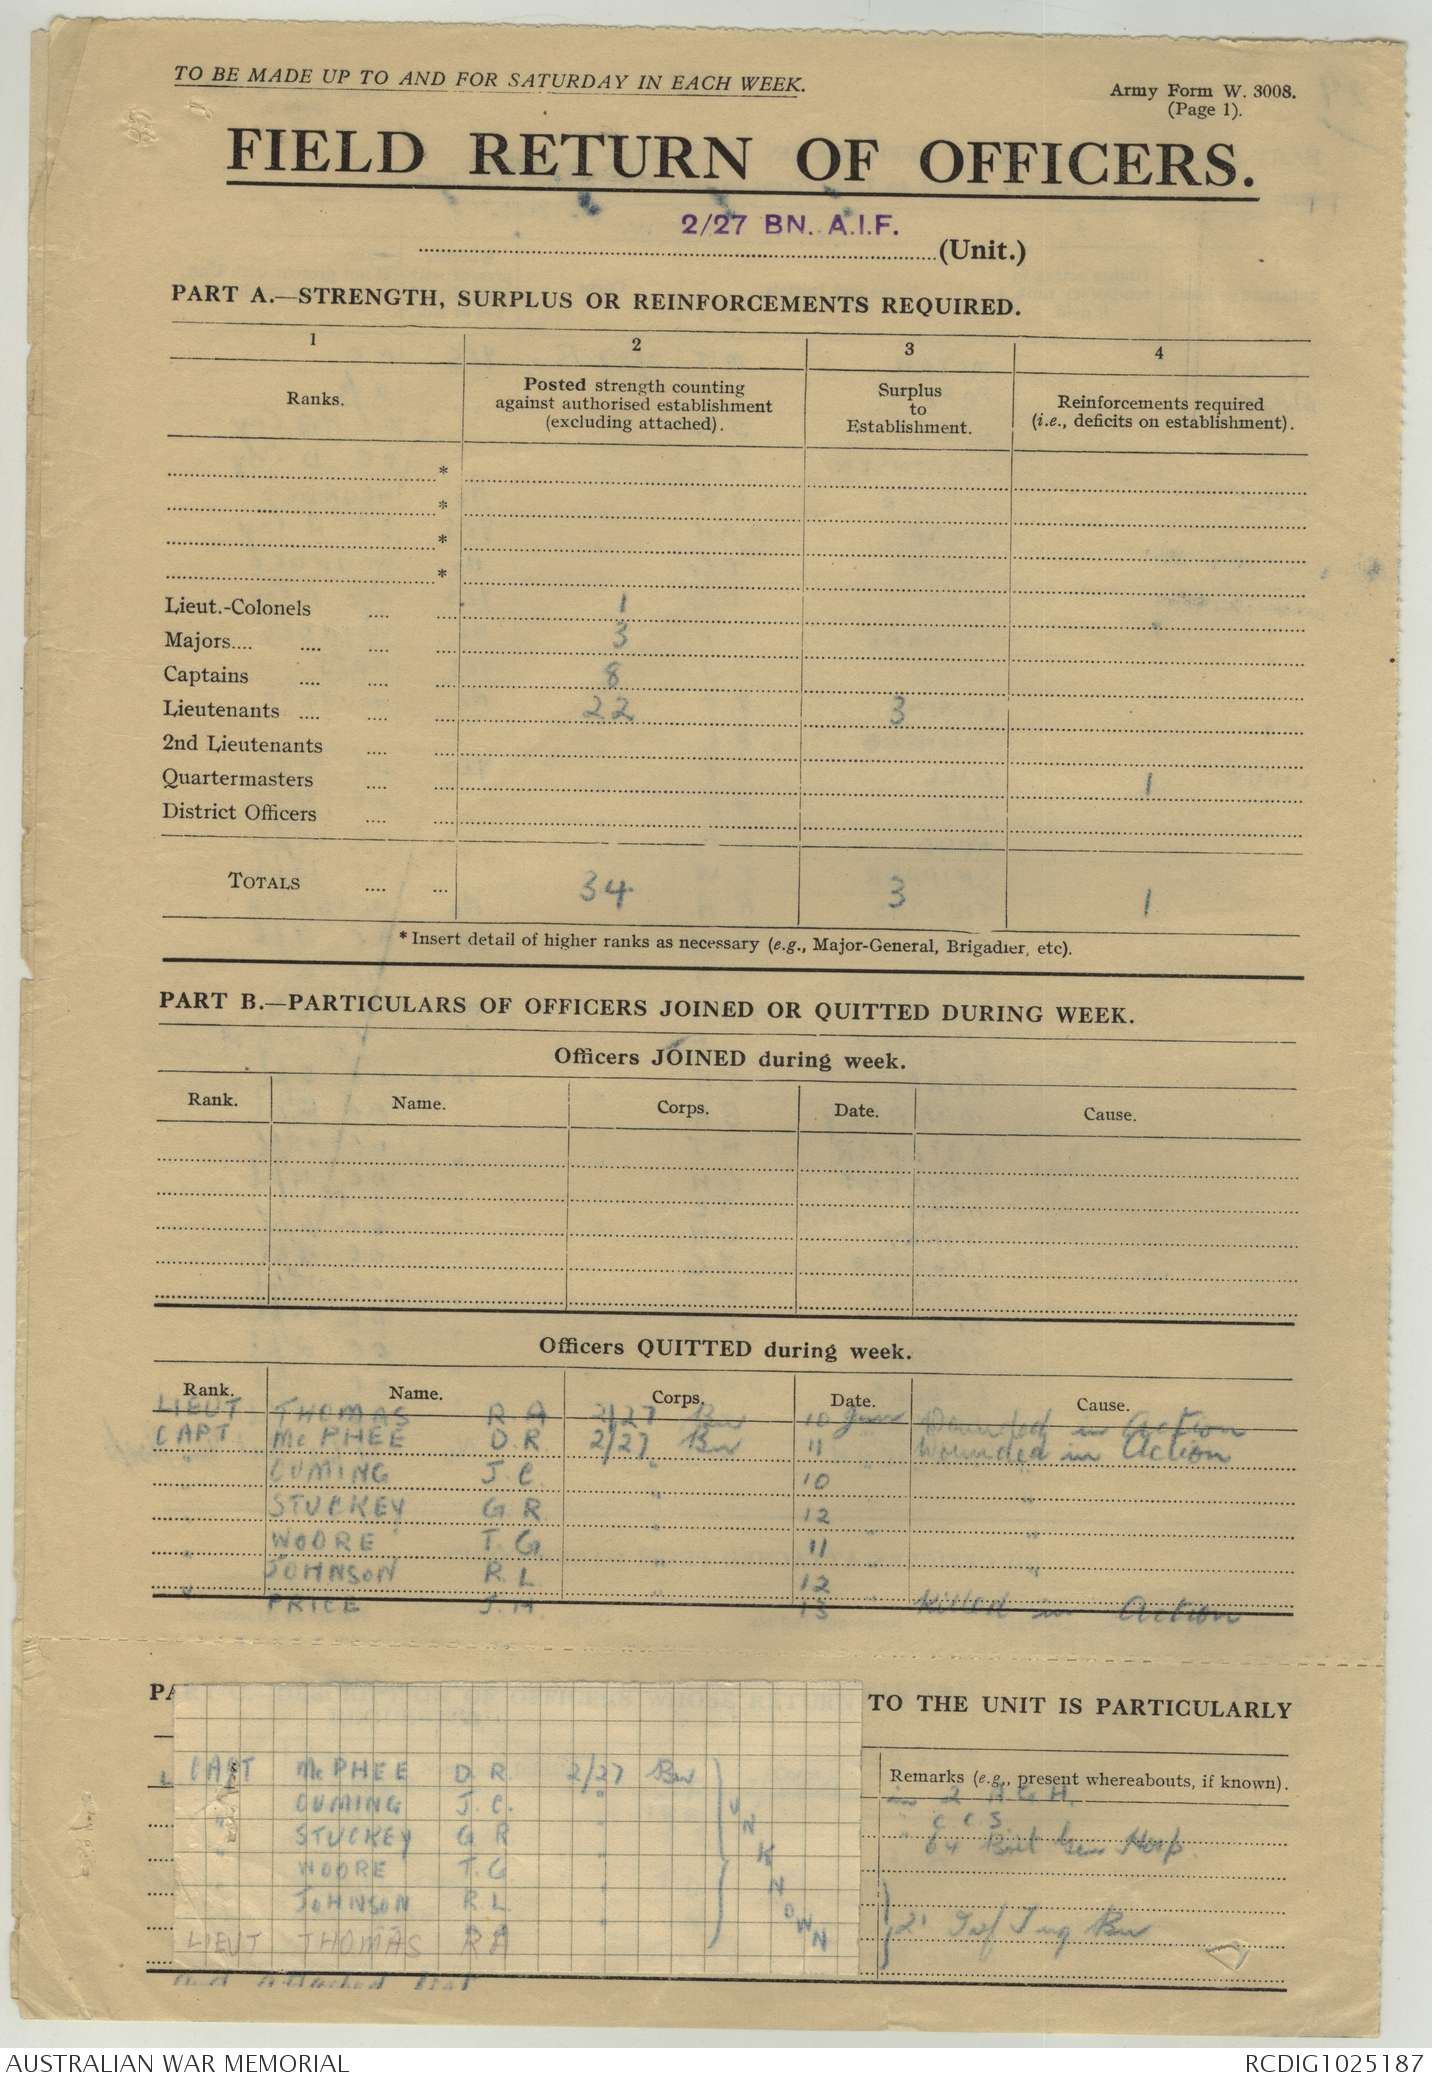 TO BE MADE UP TO AND FOR SATURDAY IN EACH WEEK.
Army Form W. 3008.
(Page 1).
FIELD RETURN OF OFFICERS.
2/27 BN. A.I.F.
(Unit.)
PART A.—STRENGTH, SURPLUS OR REINFORCEMENTS REQUIRED.
1 2 3 4
Ranks. Posted strength counting against authorised establishment (excluding attached). Surplus to Establishment. Reinforcements required (i.e., deficits on establishment).
*
*
*
*
Lieut.-Colonels .... .... 1
Majors.... .... .... .... 3
Captains .... .... .... 8
Lieutenants .... .... .... 22 3
2nd Lieutenants .... ....
Quartermasters .... .... 1
District Officers .... ....
TOTALS .... ... 34 3 1
* Insert detail of higher ranks as necessary (e.g., Major-General, Brigadier, etc).
PART B.—PARTICULARS OF OFFICERS JOINED OR QUITTED DURING WEEK.
Officers JOINED during week.
Rank. Name. Corps. Date. Cause.
Officers QUITTED during week.
Rank. Name. Corps. Date. Cause.
LIEUT THOMAS R A 2/27 Bn 10 June Wounded in Action
CAPT McPHEE D.R. 2/27 Bn 11 " Wounded in Action
" CUMING J. C. " 10 "
" STUCKEY G R " 12 " "
" WOORE T. G " 11 " "
" JOHNSON R. L. " 12 "
" PRICE J. H 13 " Killed in Action
PA
TO THE UNIT IS PARTICULARLY
Remarks (e.g., present whereabouts, if known).
CAPT McPHEE D. R. 2/27 Bn
" CUMING J. C. "
" STUCKEY G R "
WOORE T. G "
JOHNSON R. L "
LIEUT THOMAS R A
UNKNOWN
in 2 A G H.
" C C S
64 Brit Gen Hosp.
Inf Trng Bn
AUSTRALIAN WAR MEMORIAL
RCDIG1025187